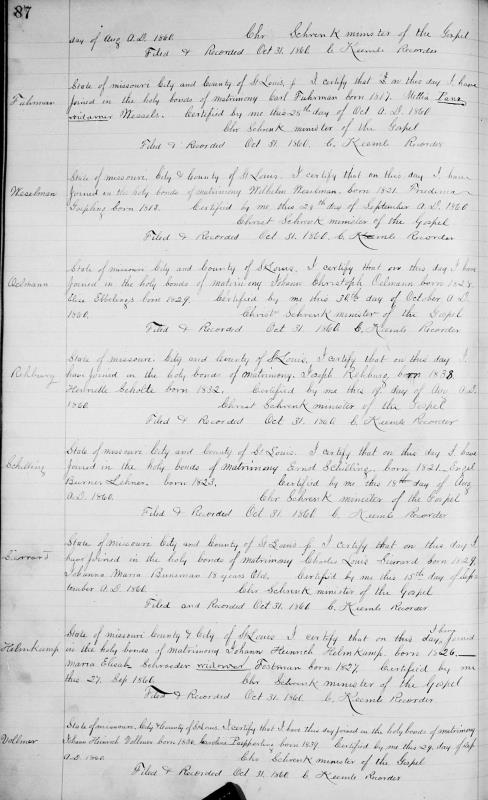 87
day of Aug A.D. 1860. Chr Schrenk minister of the Gospel
Filed & Recorded Oct 31. 1860. C Keemle Recorder
Fuhrman
State of missouri City and County of St Louis, I certify that on this day I have
joined in the holy bonds of matrimony Carl Fuhrman born 1817.
widower Wessels. Certified by me this 28th day of Oct A.D. 1860
Chr Schrenk minister of the Gospel
Filed & Recorded Oct 31. 1860. C. Keemle Recorder
Weselman
State of missouri, City & County of St Louis. I certify that on this day I have
joined in the holy bonds of matrimony Wilhelm Weselman. born 1821. Frederica
Josephine born 1813. Certified by me this 29th day of September A.D. 1860
Christ Schrenk minister of the Gospel
Filed & Recorded Oct 31. 1860. C. Keemle Recorder
Oelmann
State of missouri City and County of St Louis, I certify that on this day I have
joined in the holy bonds of matrimony Johann Christoph Oelmann born
Elise Ebbelings born 1829. Certified by me this 30th day of October A.D.
1860. Christ Schrenk minister of the Gospel
Filed & Recorded Oct 31 1860 C. Keemle Recorder
Rehburg
State of missouri. City and County of St Louis, I certify that on this day I
have joined in the holy bonds of matrimony. Joseph Rehburg, born 1838.
Henriette Scholte born 1832. Certified by me this day of A.D.
1860 Christ Schrenk minister of the Gospel
Filed & Recorded Oct 31. 1860 C Keemle Recorder
Schilling
State of missouri City and County of St Louis. I certify that on this day I have
joined in the holy bonds of matrimony Ernst Schilling. born 1821.
Burner Lehner. born 1823. Certified by me this 18th day of Aug
A.D. 1860. Chr Schrenk minister of the Gospel
Filed & Recorded Oct 31. 1860 C Keemle Recorder
State of missouri City and County of St Louis I certify that on this day I
have joined in the holy bonds of matrimony Charles Louis born 1829.
Johanna Maria 18 years old. Certified by me this 15th day of Sep
tember A.D. 1860 Chr Schrenk minister of the Gospel
Filed and Recorded Oct 31. 1860 C Keemle Recorder
Helmkamp
State of missouri County & City of St Louis I certify that on this day I have joined
in the holy bonds of matrimony Johann Heinrich Helmkamp. born 1826.
Maria Elisab Schroeder widower Fostman born 1827. Certified by me
this 27. Sep 1860. Chr Schrenk minister of the Gospel
Filed & Recorded Oct 31. 1860 C. Keemle Recorder.
Vollmer
State of missouri, City & County of St Louis. I certify that I have this day joined in the holy bonds of matrimony
Johann Heinrich Vollmer born Caroline born 1839. Certified by me this 29. day of Sep
A.D. 1860. Chr Schrenk minister of the Gospel
Filed & Recorded Oct 31. 1860 C Keemle Recorder